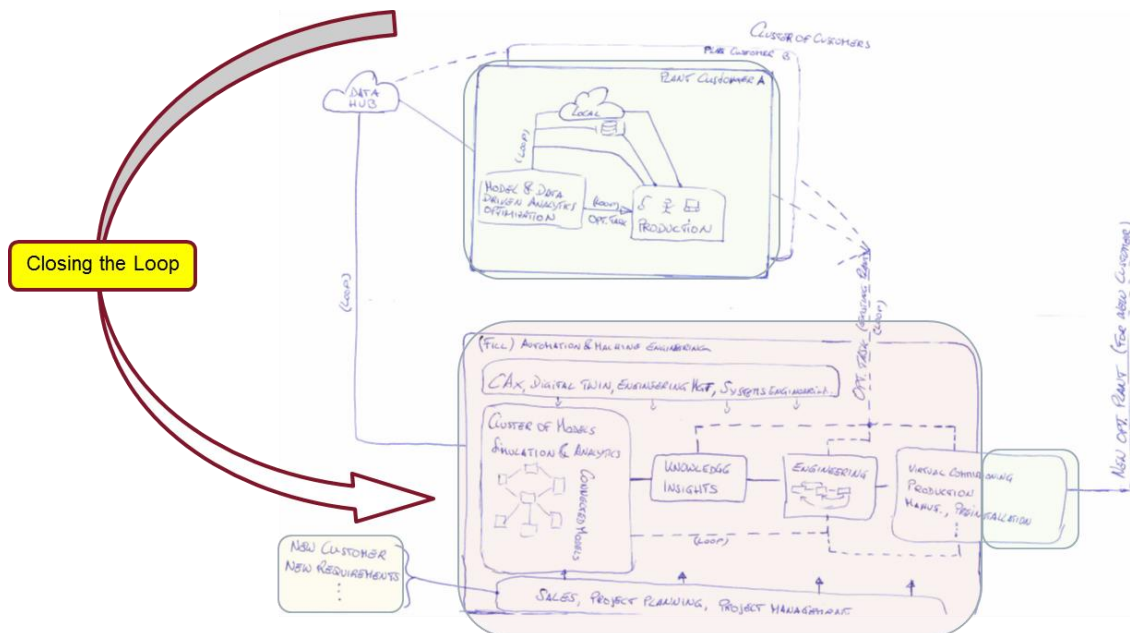 CLUSTER OF CUSTOMERS
PLANT CUSTOMER B
PLANT CUSTOMER A
DATA
HUB
LOCAL
(LOOP)
MODEL & DATA
DRIVEN ANALYTICS
OPTIMIZATION
(LOOP)
OPT. TASK
PRODUCTION
Closing the Loop
(LOOP)
OPT. TASK (EXISTING PLANT)
(LOOP)
NEW OPT. PLANT (FOR NEW CUSTOMER)
(FILL) AUTOMATION & MACHINE ENGINEERING
CAx, DIGITAL TWIN, ENGINEERING MGT, SYSTEMS ENGINEERING..
CLUSTER OF MODELS
SIMULATION & ANALYTICS
CONNECTED MODELS
KNOWLEDGE
INSIGHTS
ENGINEERING
VIRTUAL COMMISSIONING
PRODUCTION
MANUF., PREINSTALLATION
(LOOP)
NEW CUSTOMER
NEW REQUIREMENTS
⋮
SALES, PROJECT PLANNING, PROJECT MANAGEMENT